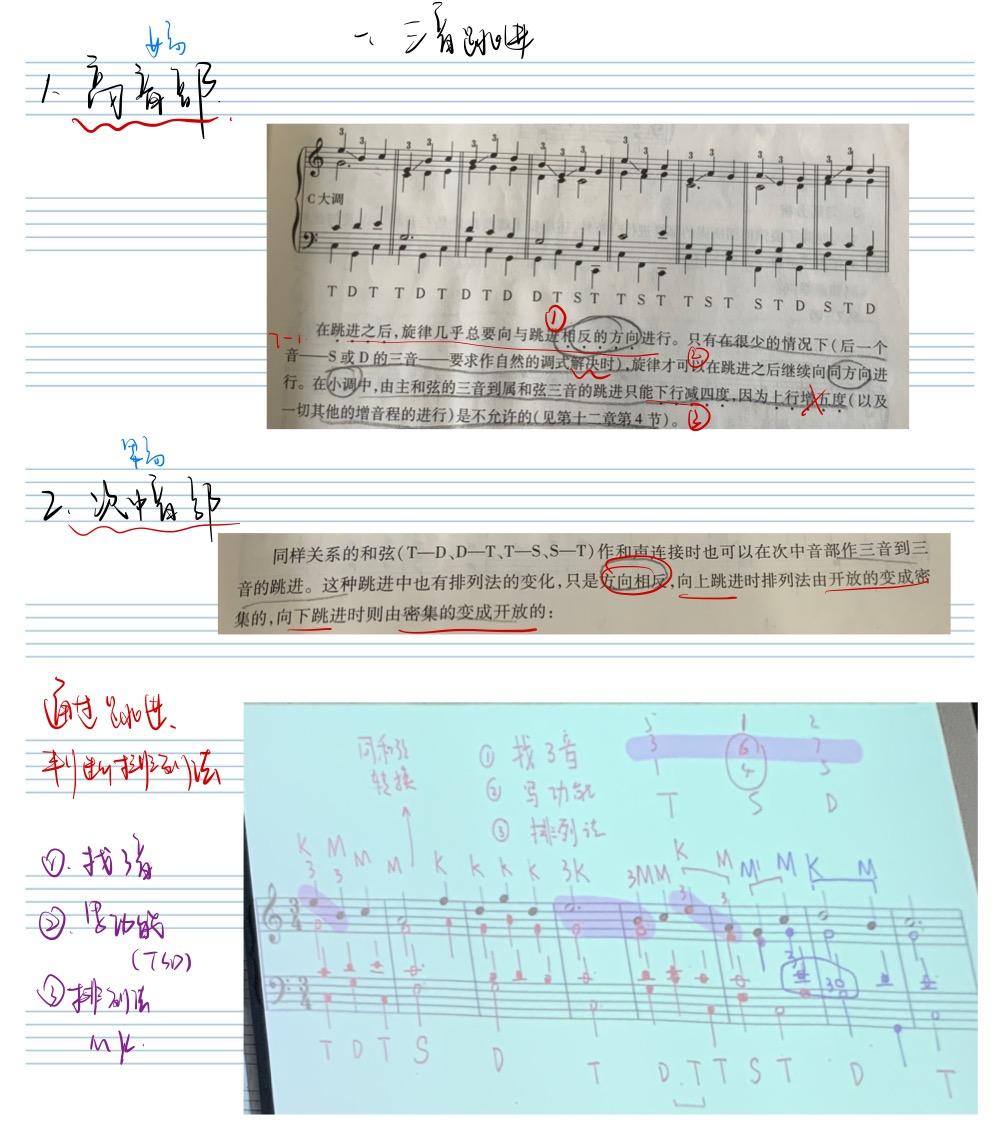 一、三音跳进
1、高音部.
C大调
T D T T D T D T D D T S T T S T T S T S T D S T D
①
7-1
在跳进之后,旋律几乎总要向与跳进相反的方向进行。只有在很少的情况下(后一个
音——S或D的三音——要求作自然的调式解决时),旋律才可以在跳进之后继续向同方向进
②
行。在小调中,由主和弦的三音到属和弦三音的跳进只能下行减四度,因为上行增五度(以及
一切其他的增音程的进行)是不允许的(见第十二章第4节)。
③
2、次中音部
同样关系的和弦(T—D、D—T、T—S、S—T)作和声连接时也可以在次中音部作三音到三
音的跳进。这种跳进中也有排列法的变化,只是方向相反,向上跳进时排列法由开放的变成密
集的,向下跳进时则由密集的变成开放的:
通过跳进、
判断排列法
①. 找3音
②. 写功能
(TSD)
③ 排列法
M K.
同和弦
转换
① 找3音
② 写功能
③ 排列法
5 1 2
3 6 7
1 4 5
T S D
K M M M K K K K 3K 3M M K M M M K M
T D T S D T D T T S T D T